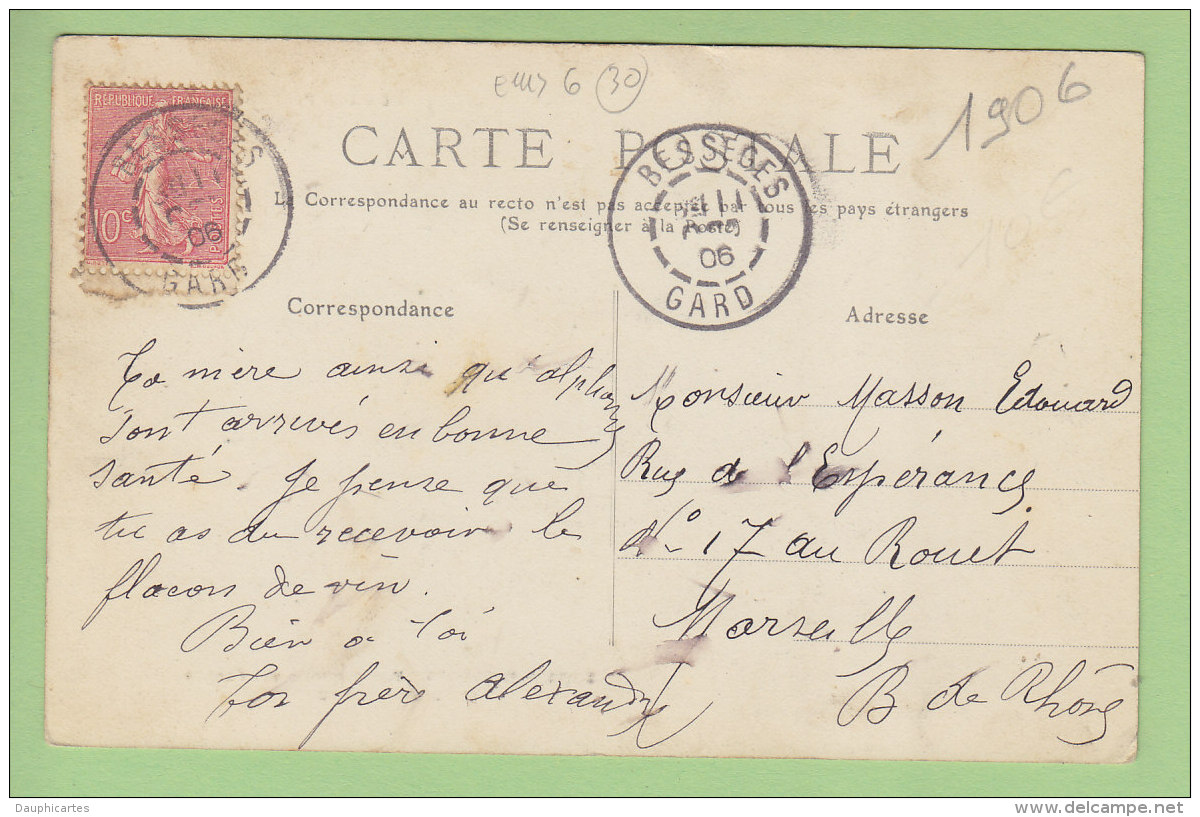 6 30
1906
CARTE POSTALE
RÉPUBLIQUE FRANÇAISE
10c
POSTES
BESSÈGES
06
GARD
BESSÈGES
06
GARD
La Correspondance au recto n'est pas acceptée par tous les pays étrangers
(Se renseigner à la Poste)
Correspondance
Ta mère ainsi qu'alphonse
sont arrivés en bonne
santé. Je pense que
tu as du recevoir le
flacon de vin.
Bien a toi
ton frère Alexandre
Adresse
Monsieur Masson Edouard
Rue de l'Espérance
No 17 au Rouet
Marseille
B de Rhône
Dauphicartes
delcampe.net